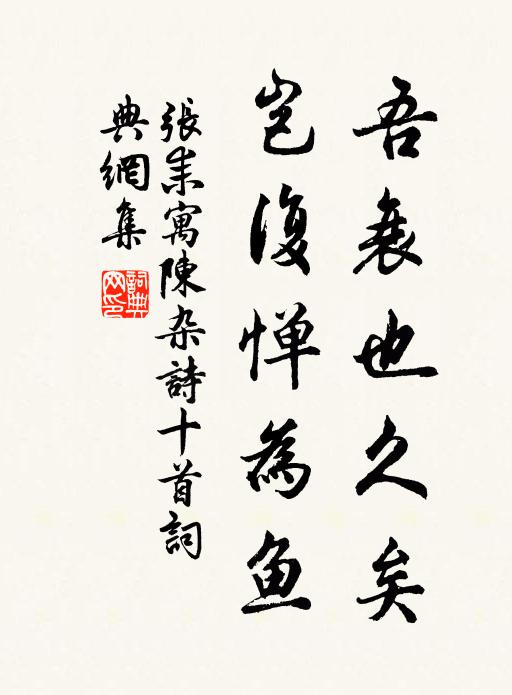 吾衰也久矣
豈復惮為魚
張耒寓陳杂詩十首詞
典網集
詞典網印